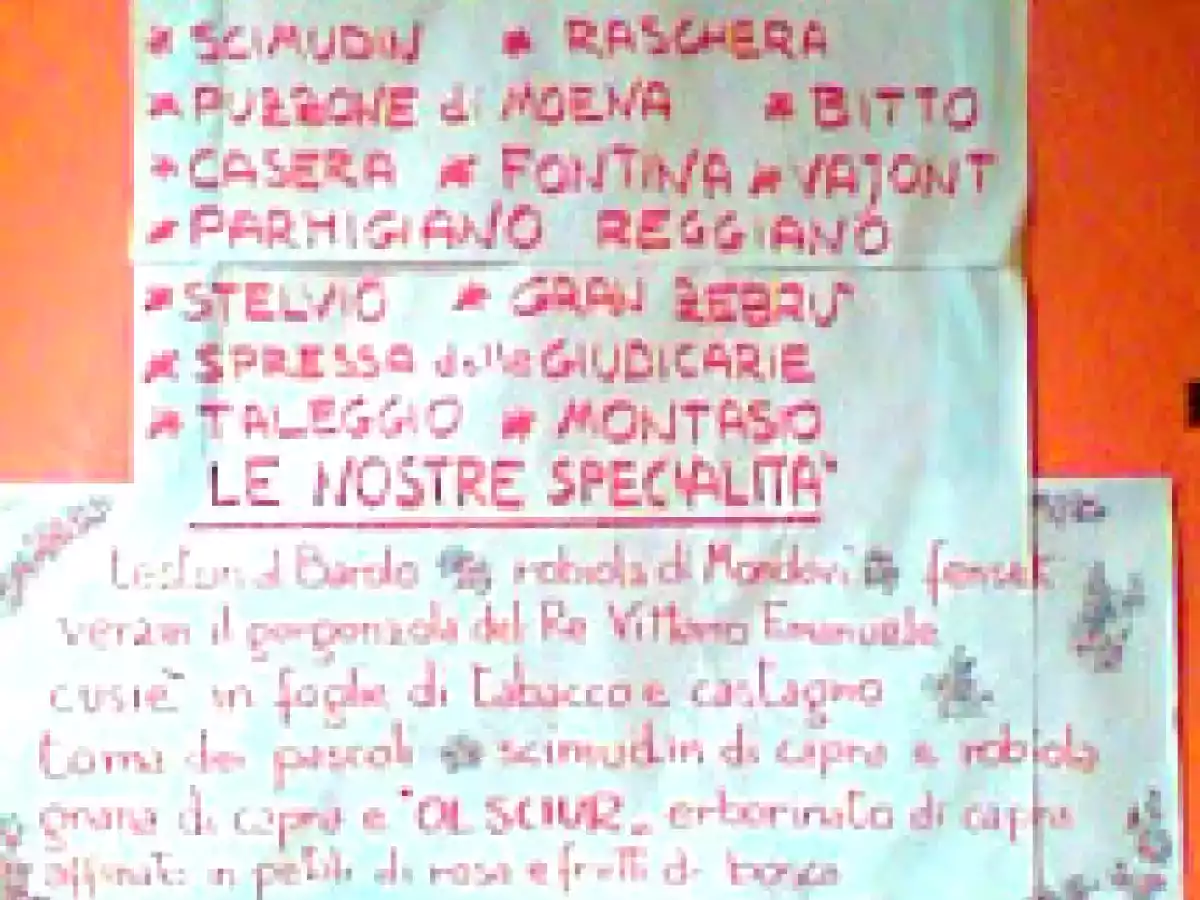 * SCIMUDIN * RASCHERA
* PUZZONE di MOENA * BITTO
* CASERA * FONTINA * VAJONT
* PARMIGIANO REGGIANO
* STELVIO * GRAN ZEBRU'
* SPRESSA delle GIUDICARIE
* TALEGGIO * MONTASIO
LE NOSTRE SPECIALITA'
robiola di Mondovi'
il gorgonzola del Re Vittorio Emanuele
cusie' in foglie di tabacco e castagno
toma dei pascoli scimudin di capra e robiola
grana di capra e "OL SCIUR" erborinato di capra
affinato in petali di rosa e frutti di bosco